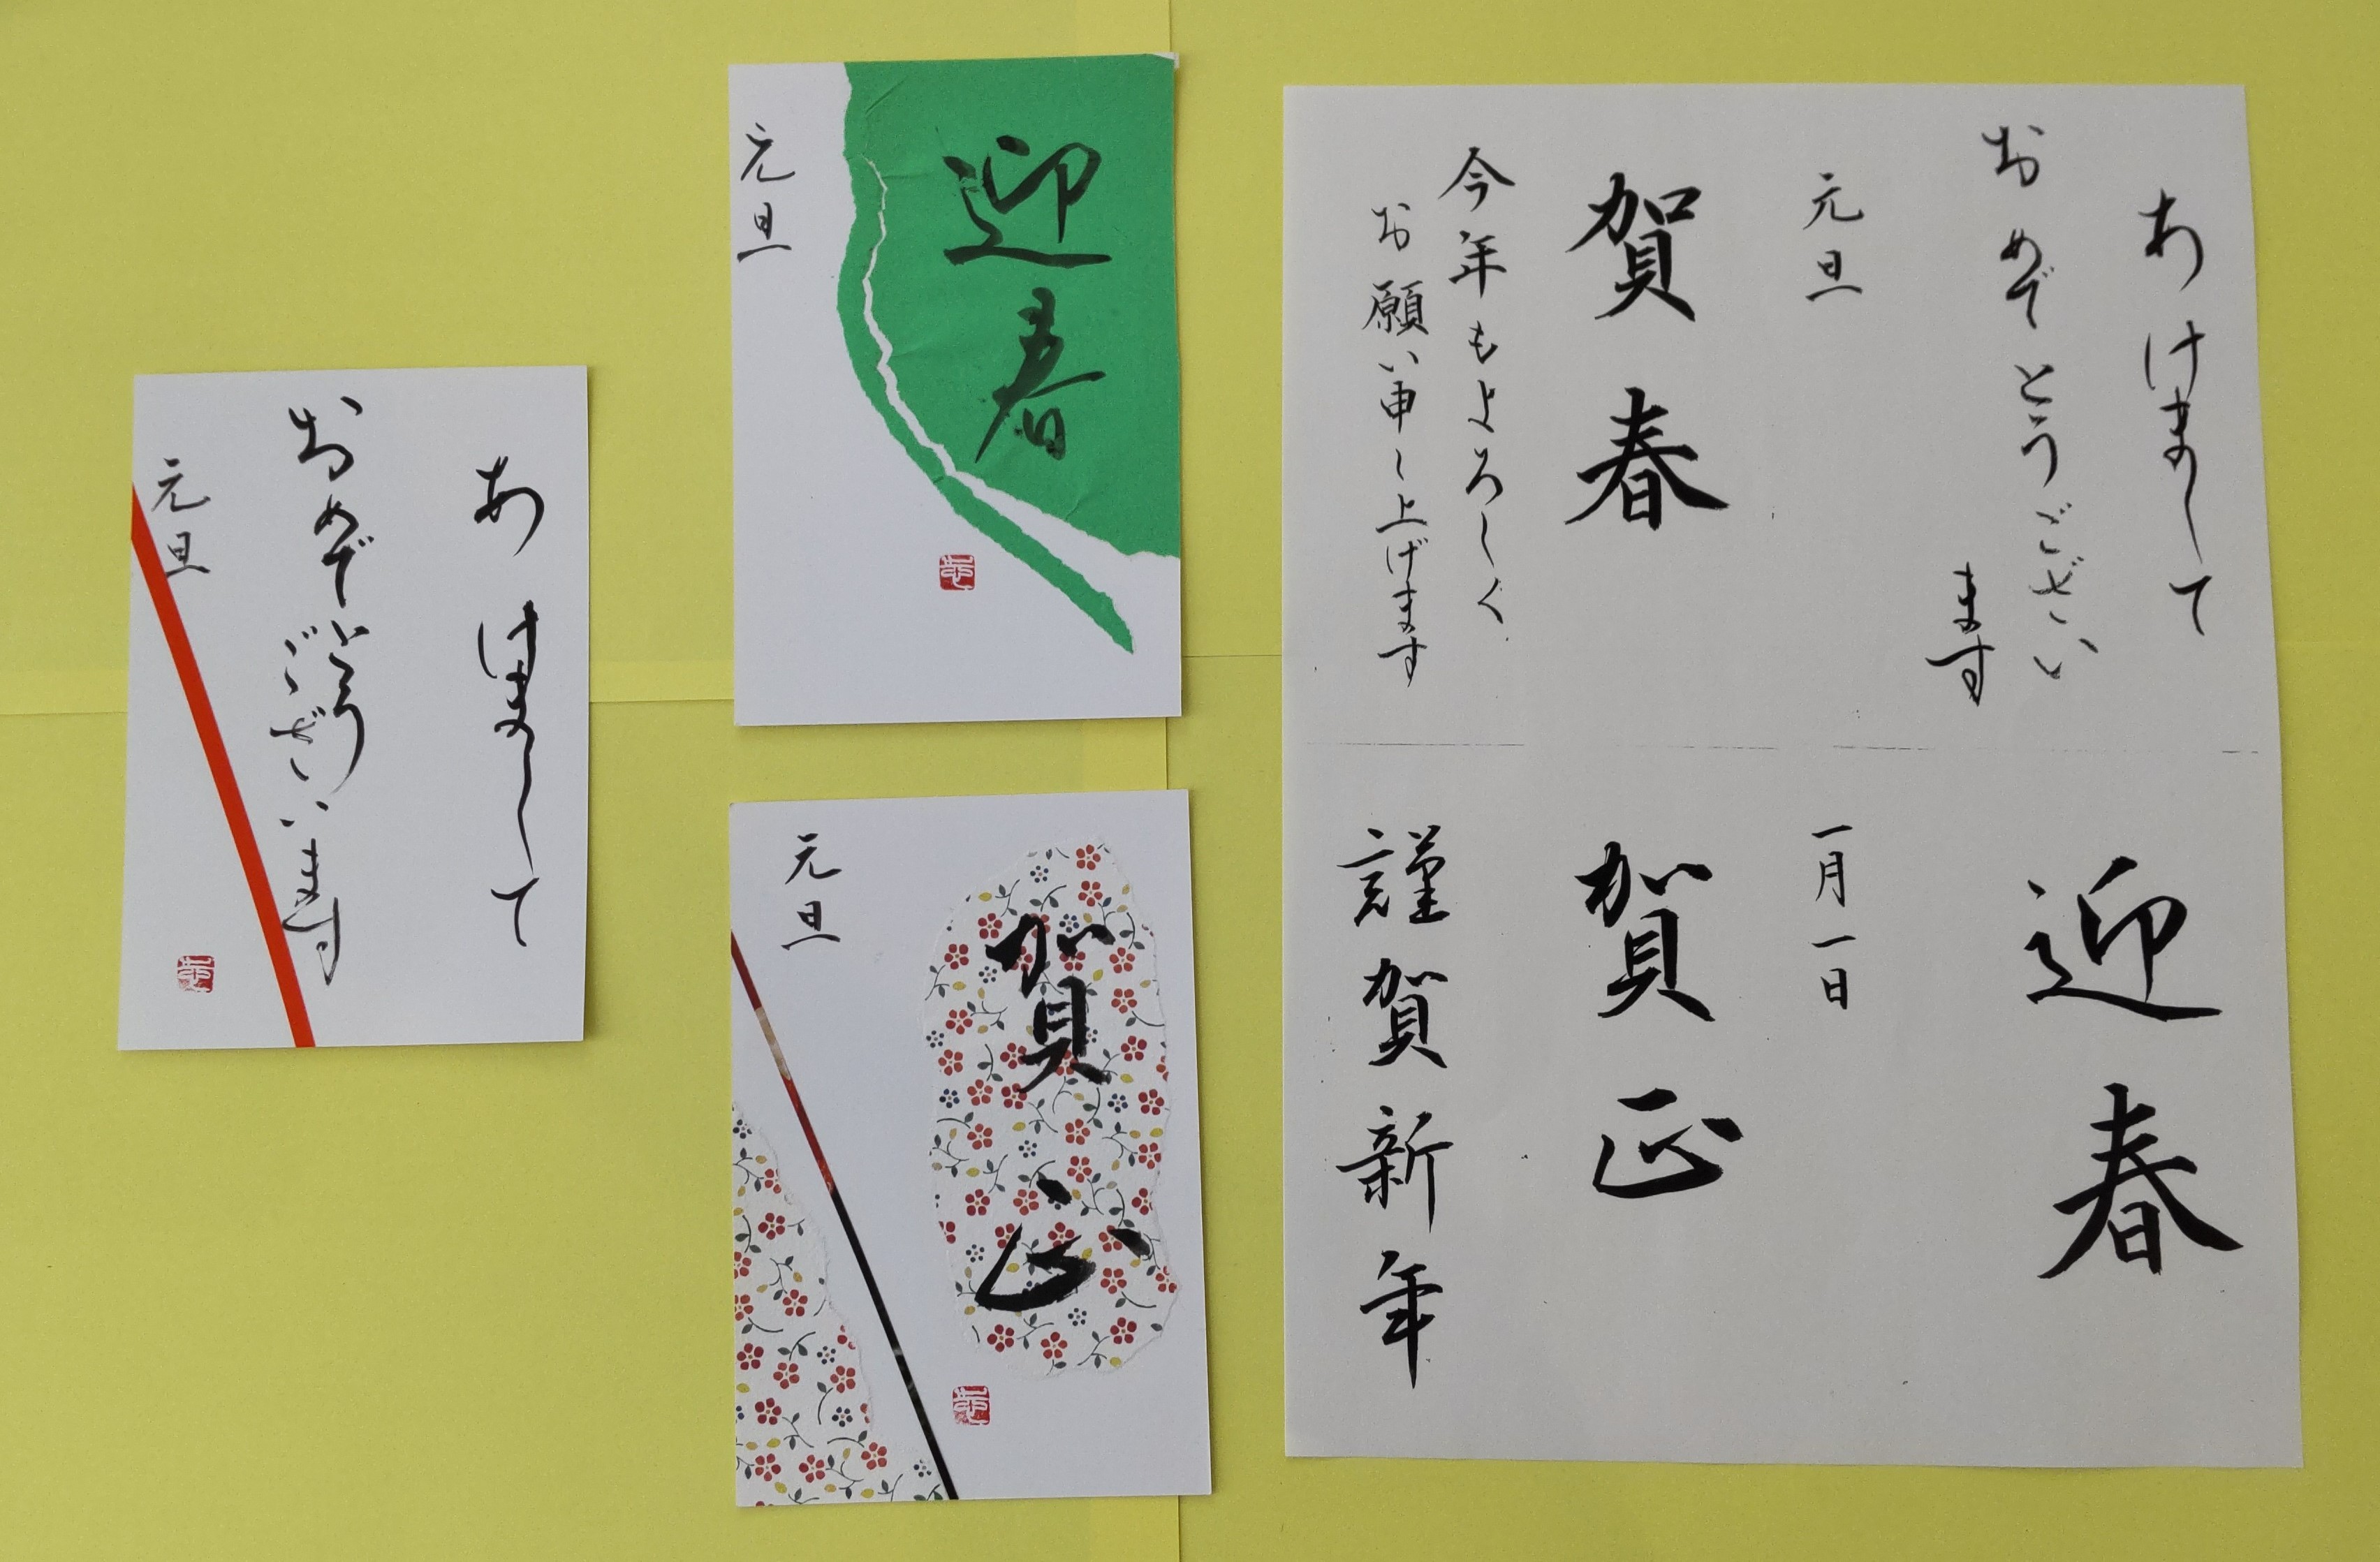 あけまして
おめでとうございます
元旦
迎春
元旦
賀正
元旦
あけまして
おめでとうござい
ます
元旦
賀春
今年もよろしく
お願い申し上げます
迎春
一月一日
賀正
謹賀新年